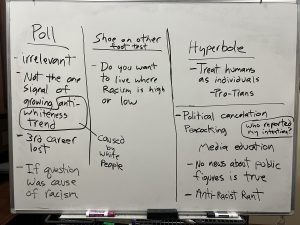 Poll
- irrelevant
- Not the one
signal of
growing anti-
whiteness
trend
- 3rd career
lost
- If question
was cause
of racism
Shoe on other
foot test
- Do you want
to live where
Racism is high
or low
caused
by
white
People
Hyperbole
- Treat humans
as individuals
- Pro-Trans
- Political cancelation
Peacocking
Who reported
my intention?
Media education
- No news about public
figures is true
- Anti-Racist Rant